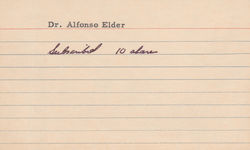 Dr. Alfonso Elder
Subscribed 10 shares